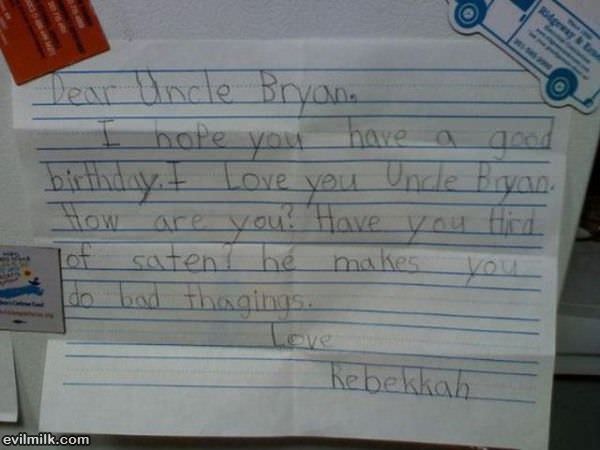 Dear Uncle Bryan.
I hope you have a good
birthday. I Love you Uncle Bryan.
How are you? Have you Hird
of saten? he makes you
do bad thagings.
Love
Rebekkah
evilmilk.com